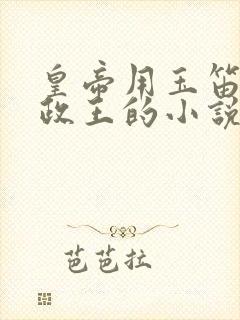 皇帝用玉笛
政王的小說
芭芭拉